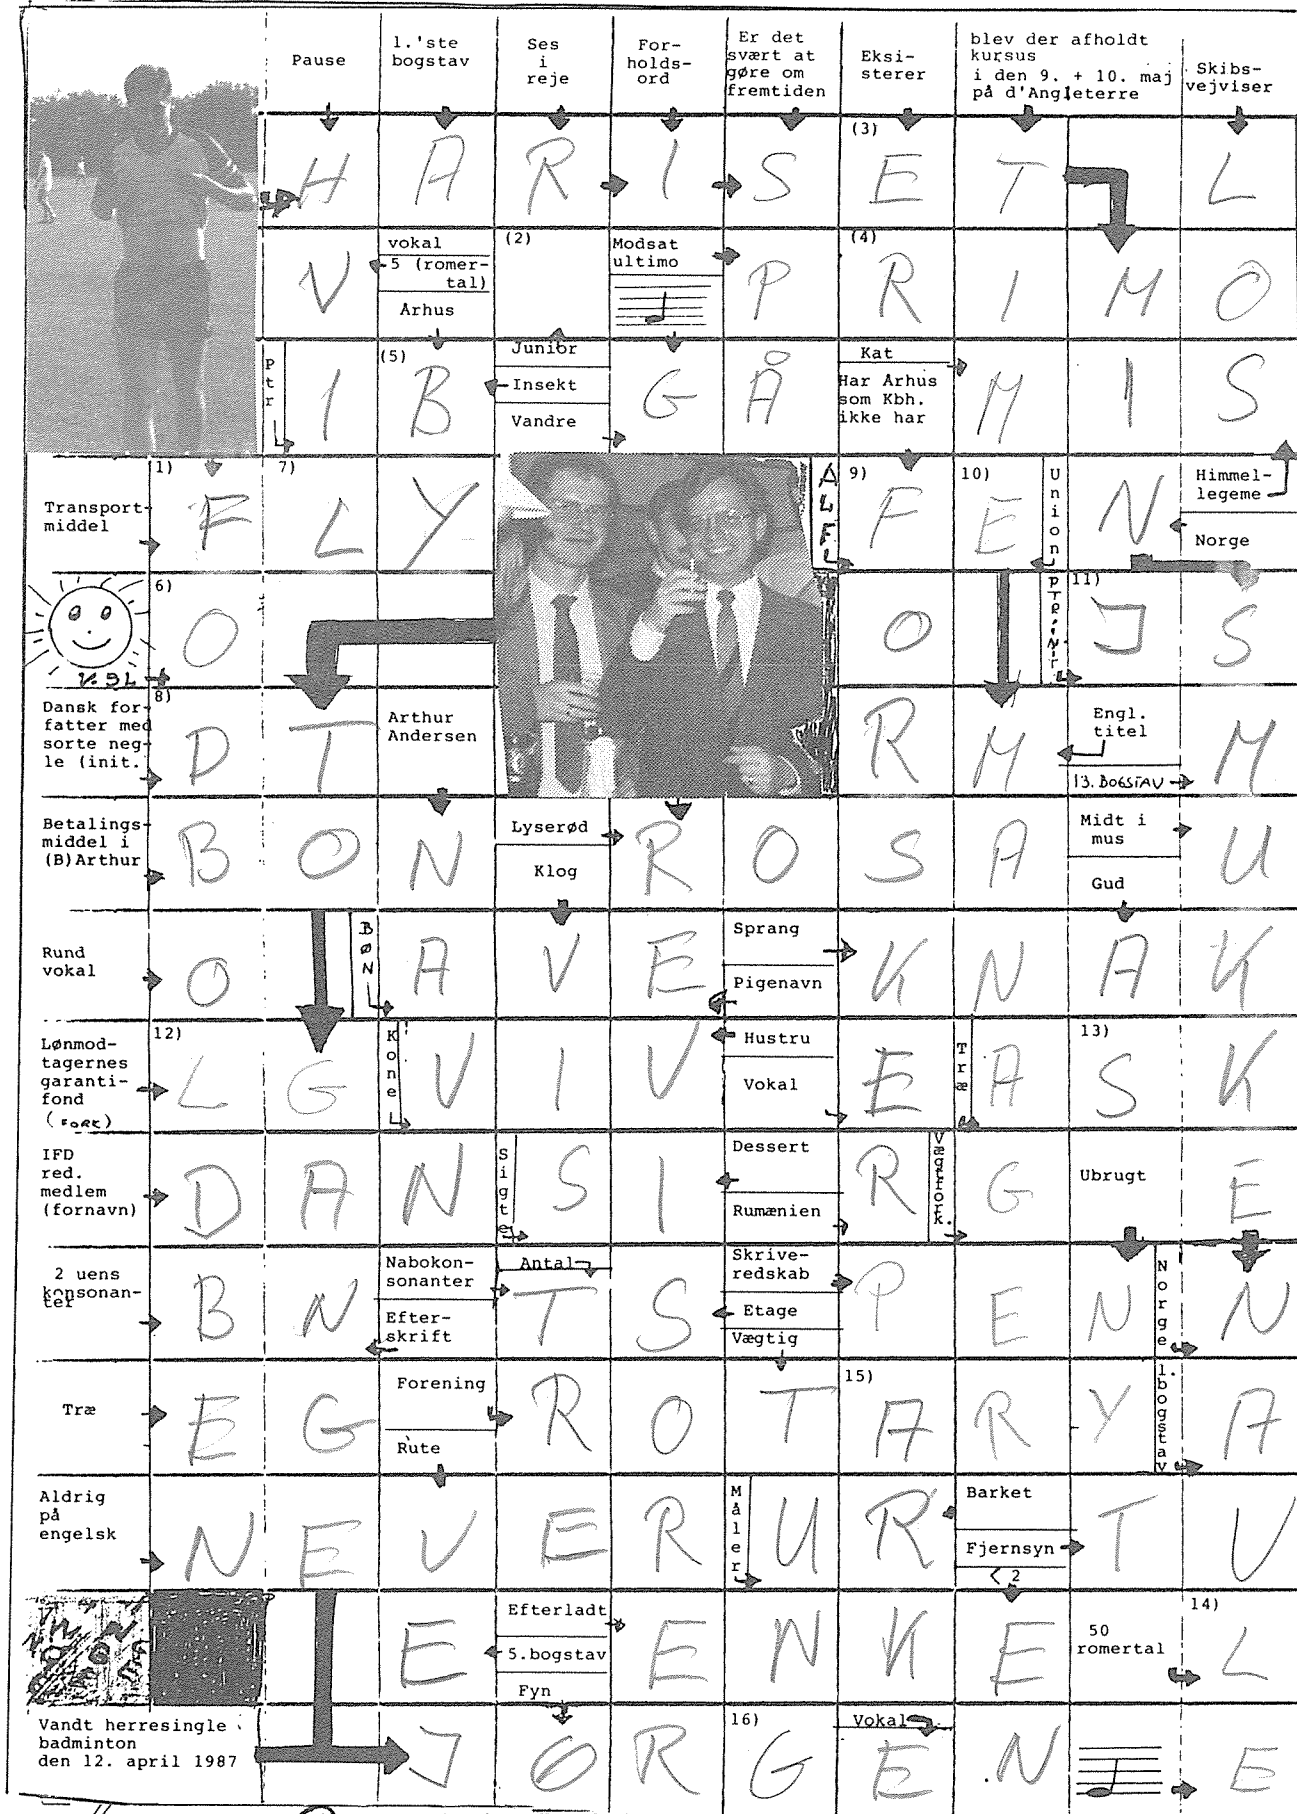 Pause
1.'ste
bogstav
Ses
i
reje
For-
holds-
ord
Er det
svært at
gøre om
fremtiden
Eksi-
sterer
blev der afholdt
kursus
i den 9. + 10. maj
på d'Angleterre
Skibs-
vejviser
(3)
H A R I S E T L
V
vokal
5 (romer-
tal)
Arhus
(2)
Modsat
ultimo
(4)
P R I M O
Ptr
I
(5)
B
Junior
Insekt
Vandre
G Å
Kat
Har Arhus
som Kbh.
ikke har
M I S
Transport-
middel
1)
7)
F L Y
ALF.
9)
F
10)
E
Union
N
Himmel-
legeme
Norge
6)
O
O
11)
J S
Dansk for-
fatter med
sorte neg-
le (init.
8)
D T
Arthur
Andersen
R M
Engl.
titel
13. BOGSTAV
M
Betalings-
middel i
(B)Arthur
B O N
Lyserød
Klog
R O S A
Midt i
mus
Gud
U
Rund
vokal
O
BØN
A V E
Sprang
Pigenavn
K N A K
Lønmod-
tagernes
garanti-
fond
(FORK)
12)
L G
Kone
V I V
Hustru
Vokal
E
Træ
A
13)
S K
IFD
red.
medlem
(fornavn)
D A N
Sigte
S I
Dessert
Rumænien
R
Vægtfork.
G
Ubrugt
E
2 uens
konsonan-
ter
B N
Nabokon-
sonanter
Efter-
skrift
Antal
T S
Skrive-
redskab
Etage
Vægtig
P E N
Norge
N
Træ
E G
Forening
Rute
R O T
15)
A R Y
1.bogstav
A
Aldrig
på
engelsk
N E V E R R
Måler
U R
Barket
Fjernsyn
< 2
T U
E
Efterladt
5.bogstav
Fyn
E N K E
50
romertal
14)
L
Vandt herresingle
badminton
den 12. april 1987
J Ø R
16)
G
Vokal
E N E